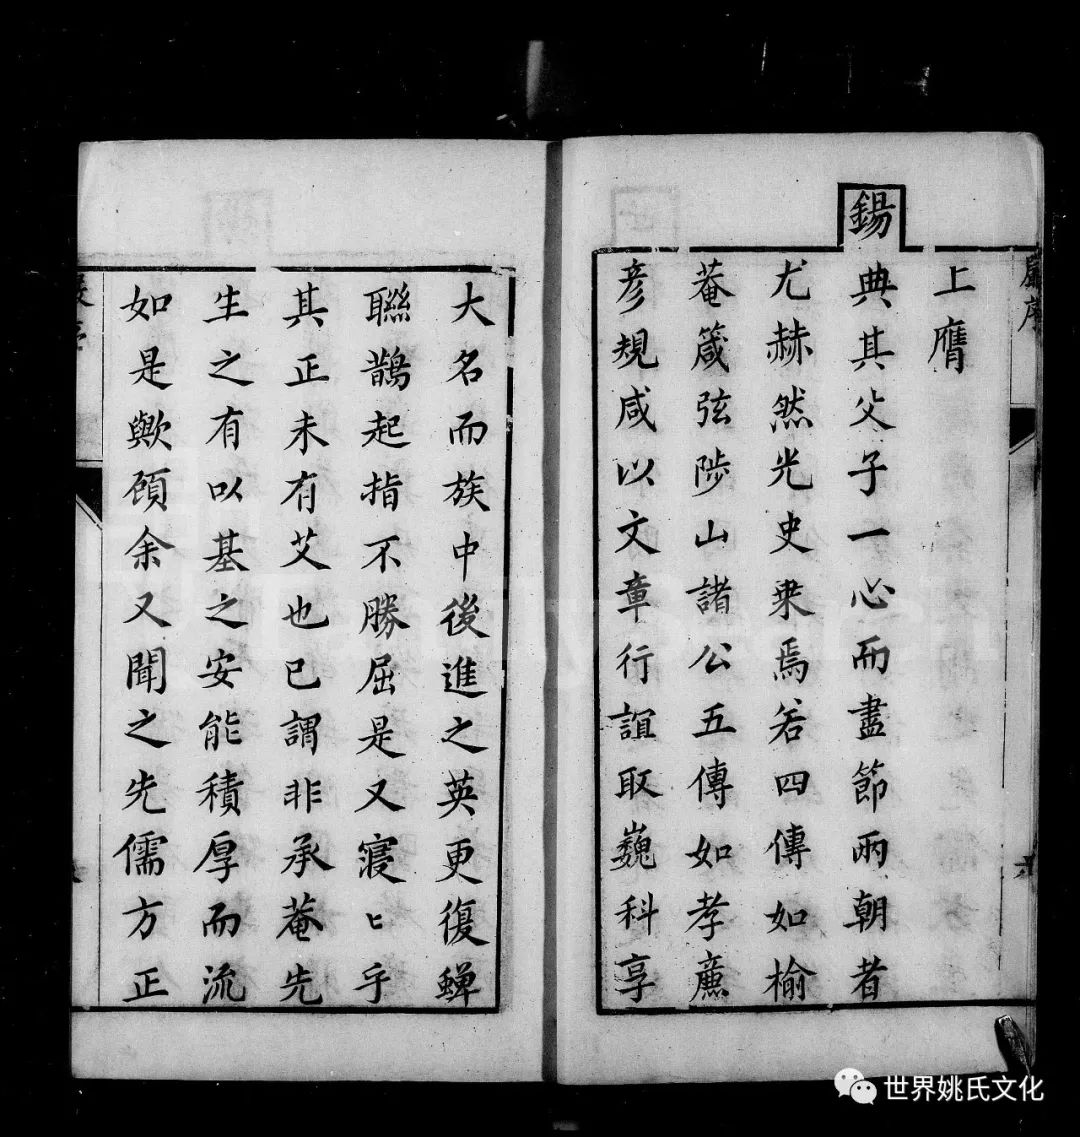 嚴序
六
上膺
錫典其父子一心而盡節兩朝者
尤赫然光史乗焉若四傳如榆
菴箴弦陟山諸公五傳如孝廉
彦規咸以文章行誼取巍科享
大名而族中後進之英更復蟬
聯鵲起指不勝屈是又寖〻乎
其正未有艾也已謂非承菴先
生之有以基之安能積厚而流
如是歟頋余又聞之先儒方正
世界姚氏文化